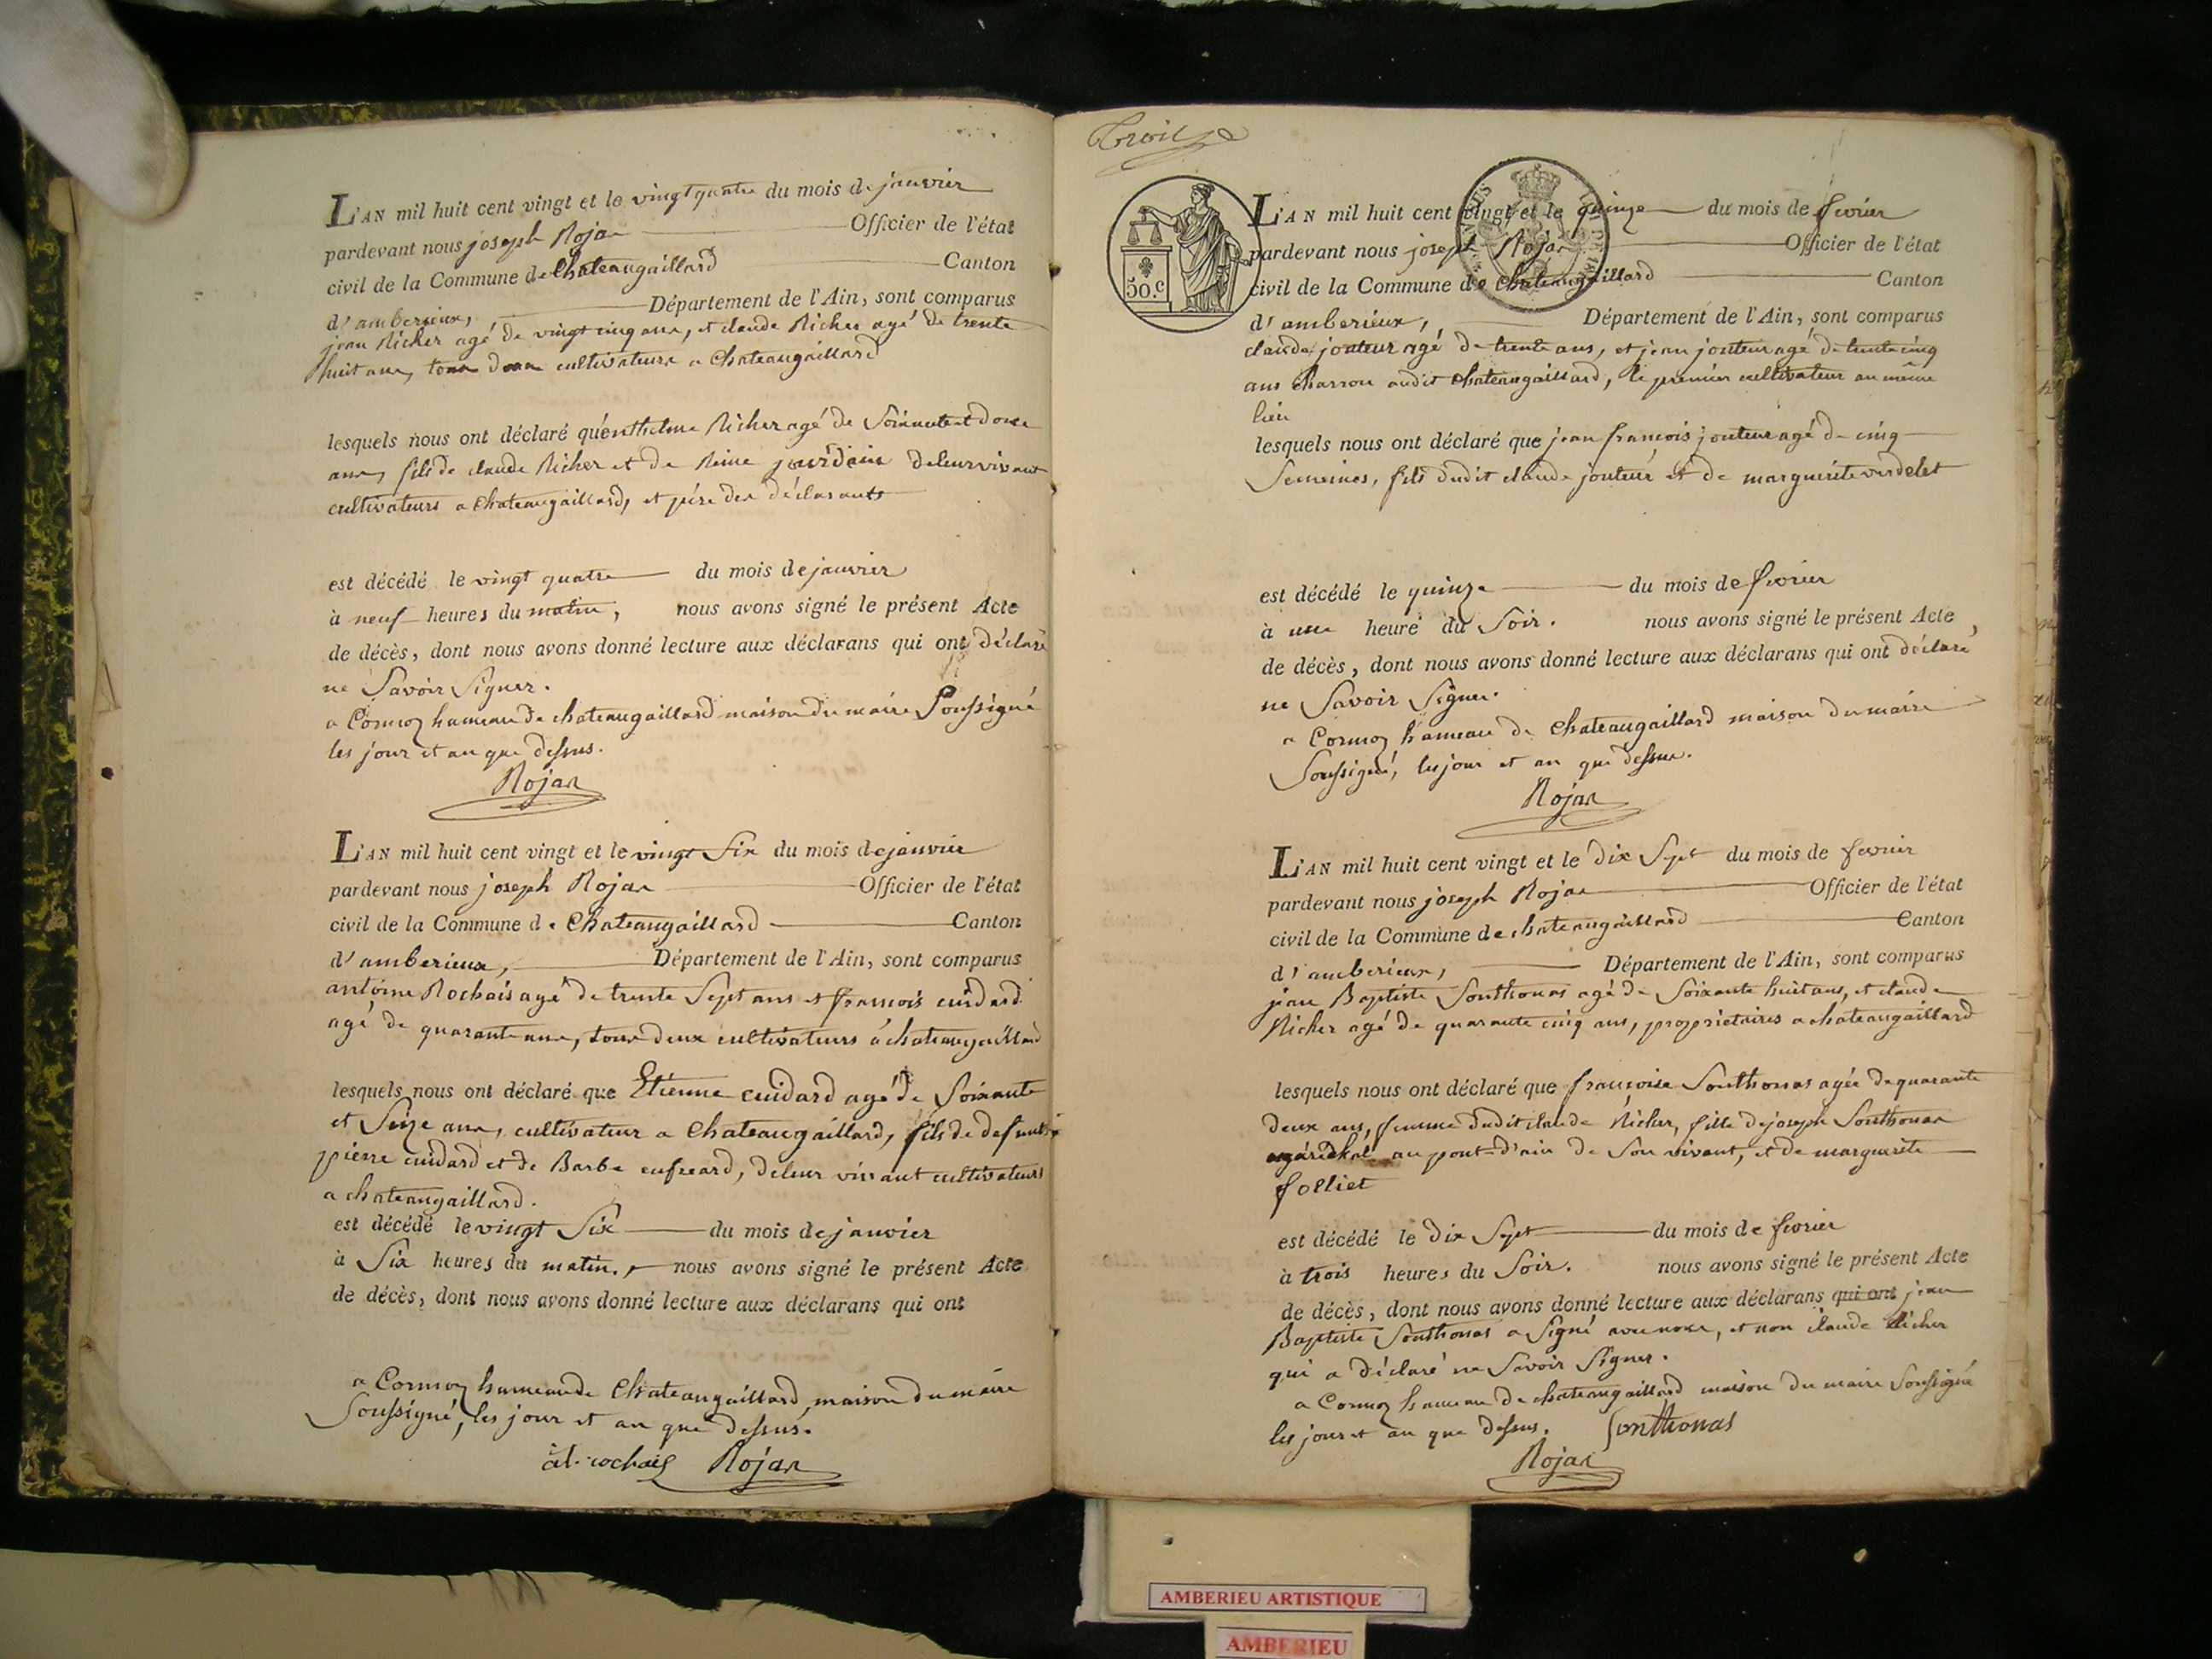 L'AN mil huit cent vingt et le vingt quatre du mois de janvier
pardevant nous joseph Rojat Officier de l'état
civil de la Commune de Chateaugaillard Canton
d'amberieux, Département de l'Ain, sont comparus
jean Richer agé de vingt cinq ans, et claude Richer agé de trente
huit ans, tous deux cultivateurs a Chateaugaillard
lesquels nous ont déclaré qu'enthelme Richer agé de Soixante et douze
ans, fils de claude Richer et de Reine jourdain de leur vivant
cultivateurs a Chateaugaillard, et père des déclarants
est décédé le vingt quatre du mois de janvier
à neuf heures du matin, nous avons signé le présent Acte
de décès, dont nous avons donné lecture aux déclarans qui ont déclaré
ne Savoir Signer.
a Cormoz hameau de chateaugaillard maison du maire Soussigné
les jour et an que dessus.
Rojat
L'AN mil huit cent vingt et le vingt Six du mois de janvier
pardevant nous joseph Rojat Officier de l'état
civil de la Commune de Chateaugaillard Canton
d'amberieux, Département de l'Ain, sont comparus
antoine Rochais agé de trente Sept ans et francois cuidard
agé de quarante ans, tous deux cultivateurs à chateaugaillard
lesquels nous ont déclaré que Etienne cuidard agé de Soixante
et Seize ans, cultivateur a Chateaugaillard, fils de defunts
pierre cuidard et de Barbe, de leur vivant cultivateurs
a chateaugaillard.
est décédé le vingt Six du mois de janvier
à Six heures du matin, nous avons signé le présent Acte
de décès, dont nous avons donné lecture aux déclarans qui ont
a Cormoz hameau de Chateaugaillard, maison du maire
Soussigné, les jour et an que dessus.
at. rochais Rojat
Troize
50.c
L'AN mil huit cent vingt et le quinze du mois de fevrier
pardevant nous joseph Rojat Officier de l'état
civil de la Commune de chateaugaillard Canton
d'amberieux, Département de l'Ain, sont comparus
claude jouteur agé de trente ans, et jean jouteur agé de trente cinq
ans charron audit chateaugaillard, le premier cultivateur au même
lieu
lesquels nous ont déclaré que jean françois jouteur agé de cinq
Semeines, fils dudit claude jouteur et de marguerite verdelet
est décédé le quinze du mois de fevrier
à une heure du Soir. nous avons signé le présent Acte
de décès, dont nous avons donné lecture aux déclarans qui ont déclaré
ne Savoir Signer.
a Cormoz hameau de Chateaugaillard maison du maire
Soussigné, les jour et an que dessus.
Rojat
L'AN mil huit cent vingt et le dix Sept du mois de fevrier
pardevant nous joseph Rojat Officier de l'état
civil de la Commune de chateaugaillard Canton
d'amberieux, Département de l'Ain, sont comparus
jean Baptiste Sonthonas agé de Soixante huit ans, et claude
Richer agé de quarante cinq ans, proprietaires a chateaugaillard
lesquels nous ont déclaré que françoise Sonthonas agée de quarante
deux ans, femme dudit claude Richer, fille de joseph Sonthonas
maréchal au pont-d'ain de Son vivant, et de marguerite
folliet
est décédé le dix Sept du mois de fevrier
à trois heures du Soir. nous avons signé le présent Acte
de décès, dont nous avons donné lecture aux déclarans qui ont jean
Baptiste Sonthonas a Signé avec nous, et non claude Richer
qui a déclaré ne Savoir Signer.
a Cormoz hameau de chateaugaillard maison du maire Soussigné
les jour et an que dessus. Sonthonas
Rojat
AMBERIEU ARTISTIQUE
AMBERIEU